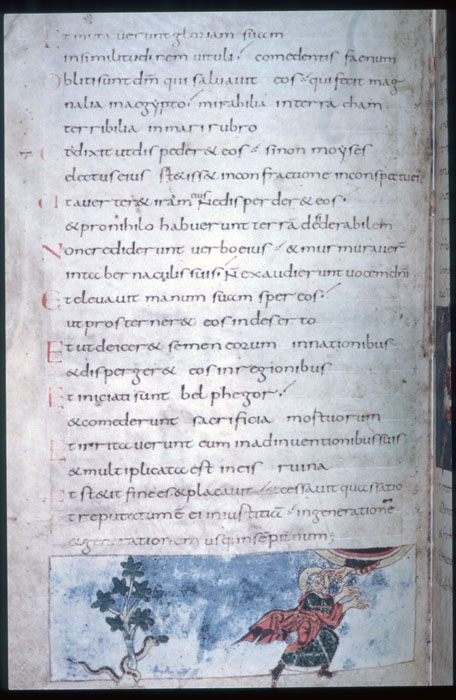 Et mutaverunt gloriam suam
insimilitudinem vituli comedentis faenum
Obliti sunt dm qui salvavit eos qui fecit mag
nalia in aegypto mirabilia in terra cham
terribilia in mari rubro
Et dixit ut disperderet eos si non moyses
electus eius stetisset in confractione in conspectu ei
Ut averteret iram eius Ne disperderet eos
et pro nihilo habuerunt terra desiderabilem
Non crediderunt verbo eius et murmuraver
in tabernaculis suis N exaudierunt vocem dni
Et elevavit manum suam super eos
ut prosterneret eos in deserto
Et ut deiceret semen eorum in nationibus
et dispergeret eos in regionibus
Et initiati sunt belphegor
et comederunt sacrificia mortuorum
Et irritaverunt eum in adinventionibus suis
et multiplicata est in eis ruina
Et stetit finees et placavit et cessavit quassatio
Et reputatum e ei in iustitia in generatione
et generationem usq; in sempitnum;